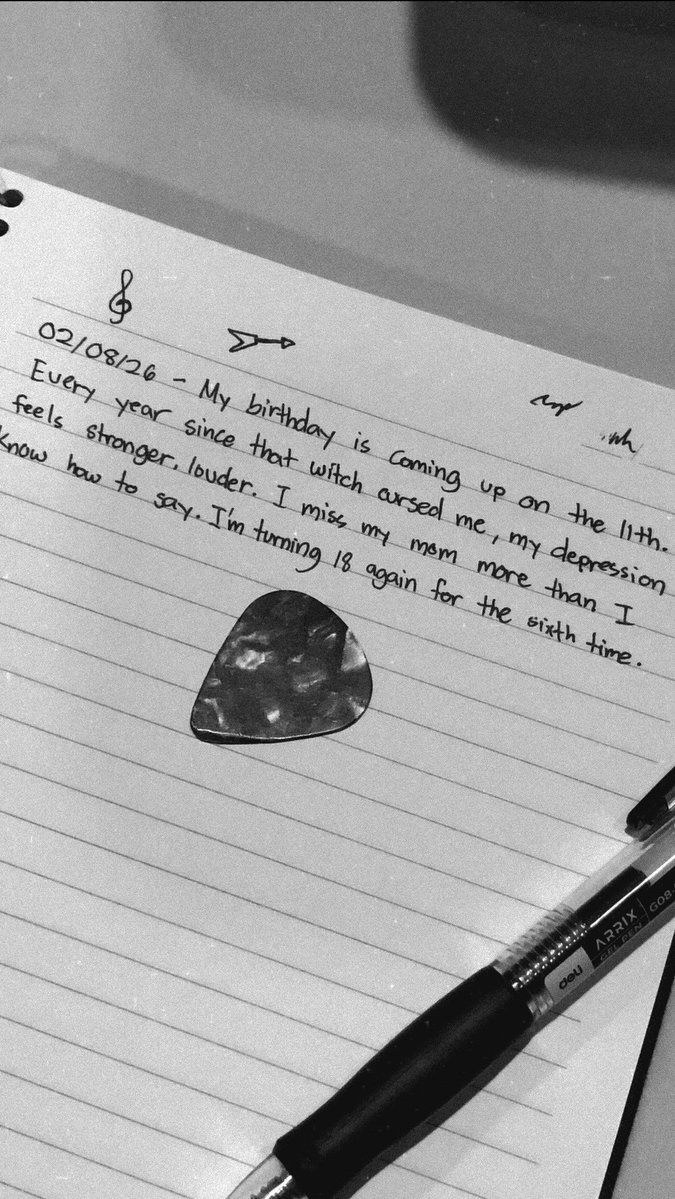 02/08/26 - My birthday is coming up on the 11th.
Every year since that witch cursed me, my depression
feels stronger, louder. I miss my mom more than I
know how to say. I'm turning 18 again for the sixth time.
ARRIX
GEL PEN
deli